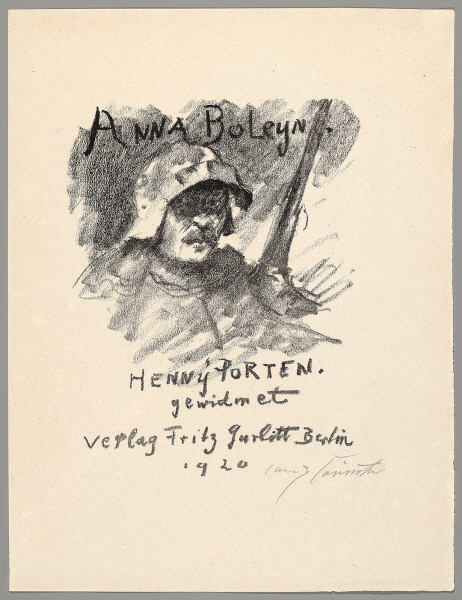 ANNA BOLEYN.
HENNY PORTEN.
gewidmet
Verlag Fritz Gurlitt Berlin
1920